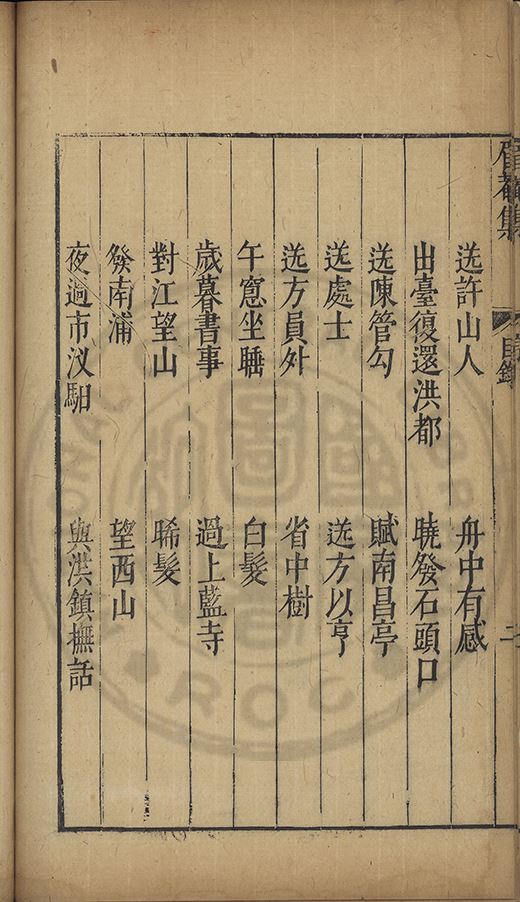 送許山人 舟中有感
出臺復還洪都 曉發石頭口
送陳管勾 賦南昌亭
送處士 送方以亨
送方員外 省中樹
午窻坐睡 白髮
歲暮書事 過上藍寺
對江望山 晞髮
發南浦 望西山
夜過市汊 與洪鎮撫話
目錄
二